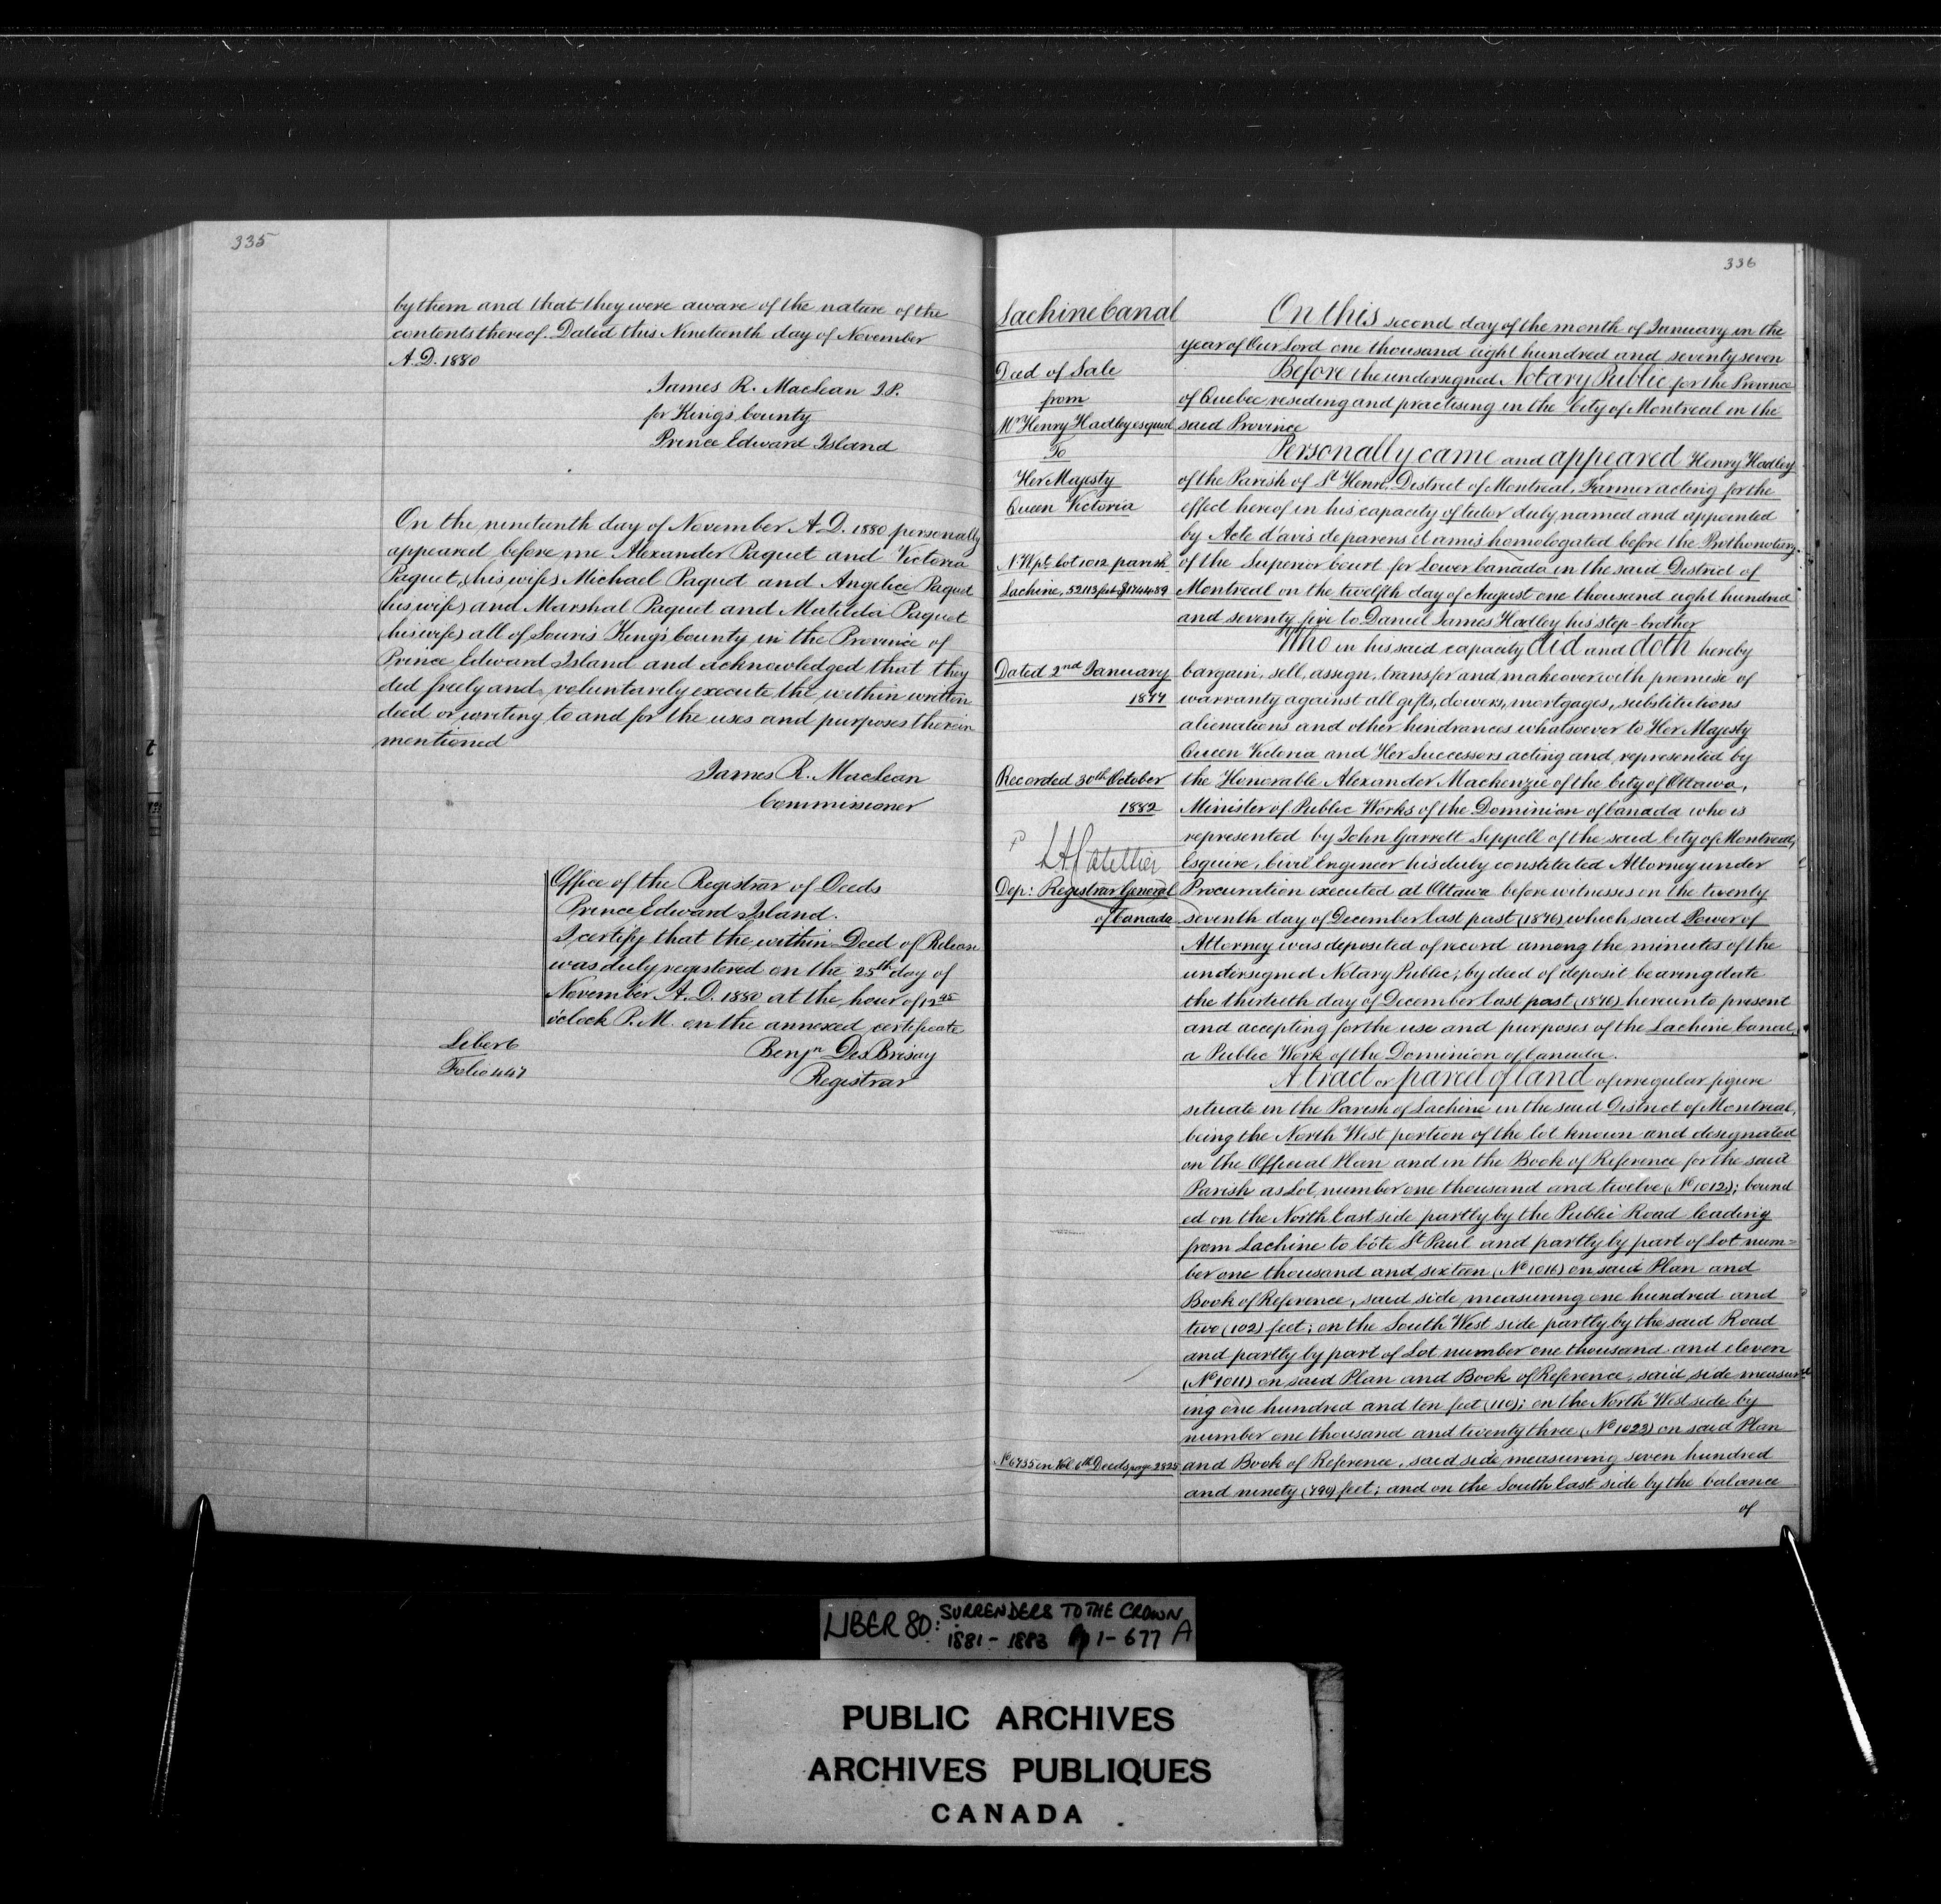 335
by them and that they were aware of the nature of the
contents thereof. Dated this Nineteenth day of November
A.D. 1880
James R. MacLean J.P.
for King's County
Prince Edward Island
On the nineteenth day of November A.D. 1880 personally
appeared before me Alexander Paquet and Victoria
Paquet (his wife) Michael Paquet and Angelice Paquet
(his wife) and Marshal Paquet and Matilda Paquet
(his wife) all of Souris King's County in the Province of
Prince Edward Island and acknowledged that they
did freely and voluntarily execute the within written
deed or writing to and for the uses and purposes therein
mentioned
James R. MacLean
Commissioner
Office of the Registrar of Deeds
Prince Edward Island.
I certify that the within Deed of Release
was duly registered on the 25th day of
November A.D. 1880 at the hour of 12
o'clock P.M. on the annexed certificate
Liber 6
Folio 447
Benjn DesBrisay
Registrar
336
Lachine Canal
Deed of Sale
from
Mr Henry Hadley esqual
To
Her Majesty
Queen Victoria
N.W. pt. Lot 1012 parish
Lachine, 52113 feet
Dated 2nd January
1877
Recorded 30th October
1882
Dep: Registrar General
of Canada
No 6735 in Vol 6th Deeds page 2825
On this second day of the month of January in the
year of Our Lord one thousand eight hundred and seventy seven
Before the undersigned Notary Public for the Province
of Quebec residing and practising in the City of Montreal in the
said Province
Personally came and appeared Henry Hadley
of the Parish of St Henri, District of Montreal, Farmer acting for the
effect hereof in his capacity of tutor duly named and appointed
by Acte d'avis de parens et amis homologated before the Prothonotary
of the Superior Court for Lower Canada in the said District of
Montreal on the twelfth day of August one thousand eight hundred
and seventy five to Daniel James Hadley his step-brother
Who in his said capacity did and doth hereby
bargain, sell, assign, transfer and make over with promise of
warranty against all gifts, dowers, mortgages, substitutions
alienations and other hindrances whatsoever to Her Majesty
Queen Victoria and Her Successors acting and represented by
the Honorable Alexander Mackenzie of the City of Ottawa,
Minister of Public Works of the Dominion of Canada who is
represented by John Garrett Sippell of the said City of Montreal,
Esquire, Civil Engineer his duly constituted Attorney under
Procuration executed at Ottawa before witnesses on the twenty
seventh day of December last past (1876) which said Power of
Attorney was deposited of record among the minutes of the
undersigned Notary Public; by deed of deposit bearing date
the thirtieth day of December last past (1876) hereunto present
and accepting for the use and purposes of the Lachine Canal,
a Public Work of the Dominion of Canada.
A tract or parcel of land of irregular figure
situate in the Parish of Lachine in the said District of Montreal,
being the North West portion of the lot known and designated
on the Official Plan and in the Book of Reference for the said
Parish as Lot number one thousand and twelve (No 1012); bound
ed on the North East side partly by the Public Road leading
from Lachine to Côte St Paul and partly by part of Lot num=
ber one thousand and sixteen (No 1016) on said Plan and
Book of Reference, said side measuring one hundred and
two (102) feet; on the South West side partly by the said Road
and partly by part of Lot number one thousand and eleven
(No 1011) on said Plan and Book of Reference, said side measur
ing one hundred and ten feet (110); on the North West side by
number one thousand and twenty three (No 1023) on said Plan
and Book of Reference, said side measuring seven hundred
and ninety (790) feet; and on the South East side by the balance
of
LIBER 80: SURRENDERS TO THE CROWN
1881 - 1883 pp 1 - 677 A
PUBLIC ARCHIVES
ARCHIVES PUBLIQUES
CANADA